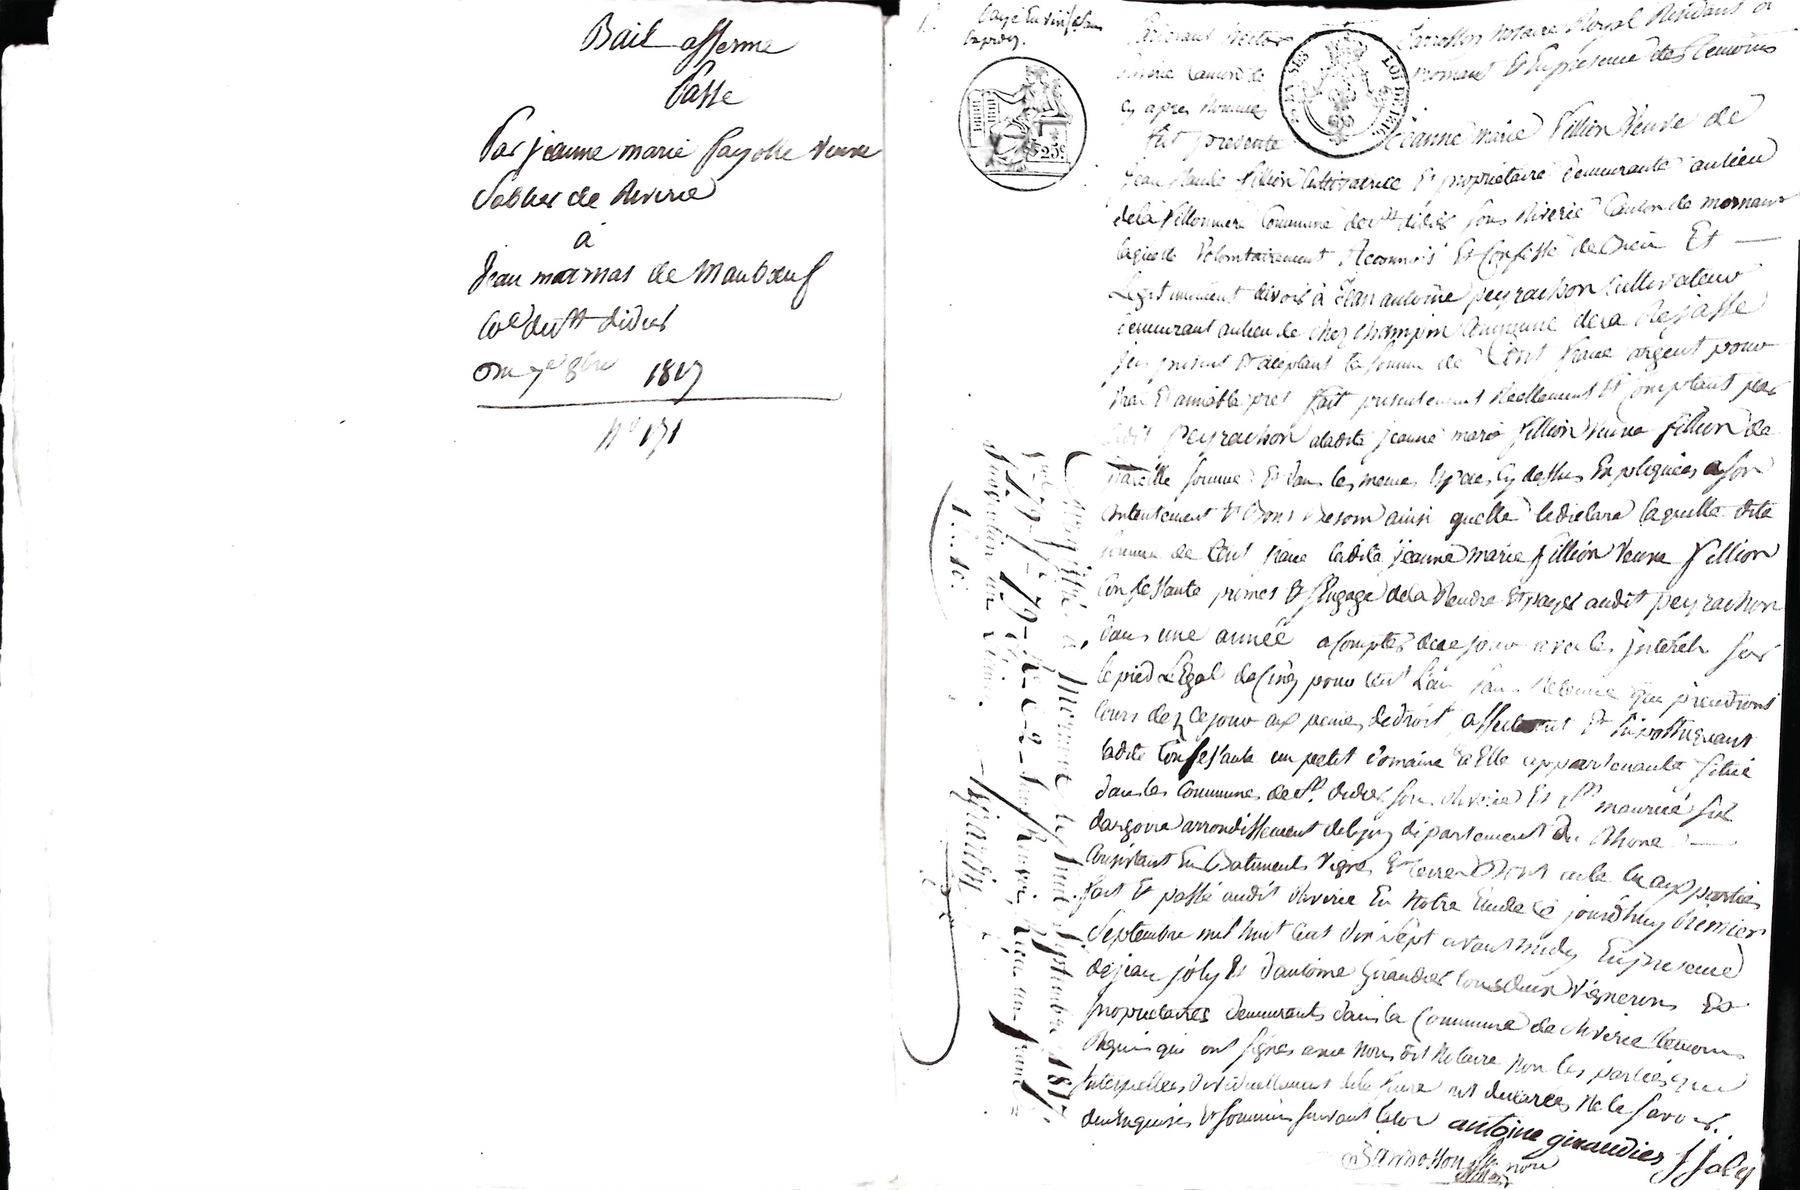 Bail afferme
Passé
Par jeanne marie fayolle veuve
Sablier de Riverie
à
Jean marnas de Maubœuf
Cne de st didier
Du 7e 8bre 1817
N° 171
payé En vin
Pardevant Nectos Barrosson Notaire Royal Residant a
Riverie Canton de mornant Et En presence des temoins
cy apres Nommés
fut presente jeanne marie Fillion Veuve de
jean Claude fillion Cultivatrice Et proprietaire demeurante au lieu
de la fillonniere Commune de st didier sous Riverie Canton de mornant
laquelle Volontairement a reconnu Et Confessé de Devoir Et
Legitimement devoir à Jean antoine peyrachon Cultivateur
demeurant au lieu de chez champin Commune de la Rejasse
jcy present Et acceptant la somme de Cent franc argent pour
vrai Et amiable pret fait presentement Reellement Et Comptant par
ledit peyrachon a ladite jeanne marie fillion Veuve fillion de
pareille somme Et dans les memes Especes cy dessus Expliquées a son
Contentement Et Dont besoin ainsi quelle le declare laquelle dite
somme de Cent franc ladite jeanne marie fillion Veuve fillion
Confessante promet Et sengage de la Rendre Et payer audit peyrachon
dans une année a compter de ce jour avec les jnterets sur
le pied Legal de Cinq pour cent L'an sans Retenue qui prendront
Cours dez ce jour aux peines de droit affectant Et hipothequant
ladite Confessante un petit domaine a Elle appartenante situé
dans les Communes de st. didier sous Riverie Et st maurice sur
dargoire arrondissement de Lyon departement du Rhone
Consistant En Batiments Vignes Et terres Dont acte lu aux parties
fait Et passé audit Riverie En Notre Etude Ce jourdhuy premier
Septembre mil huit Cent Dix Sept avant midy En presence
de jean joly Et d'antoine Giraudier tous deux Vignerons Et
proprietaires demeurants dans la Commune de Riverie temoins
Requis qui ont signés avec Nous dit Notaire Non les parties que
jnterpellées jndividuellement de le faire ont declarées Ne le savoir
de ce Enquises Et sommées suivant la loi
antoine giraudier J Joly
Barrosson
Nore
Enregistré à Mornant le huit Septembre 1817
Reçu un franc
1..10
25c